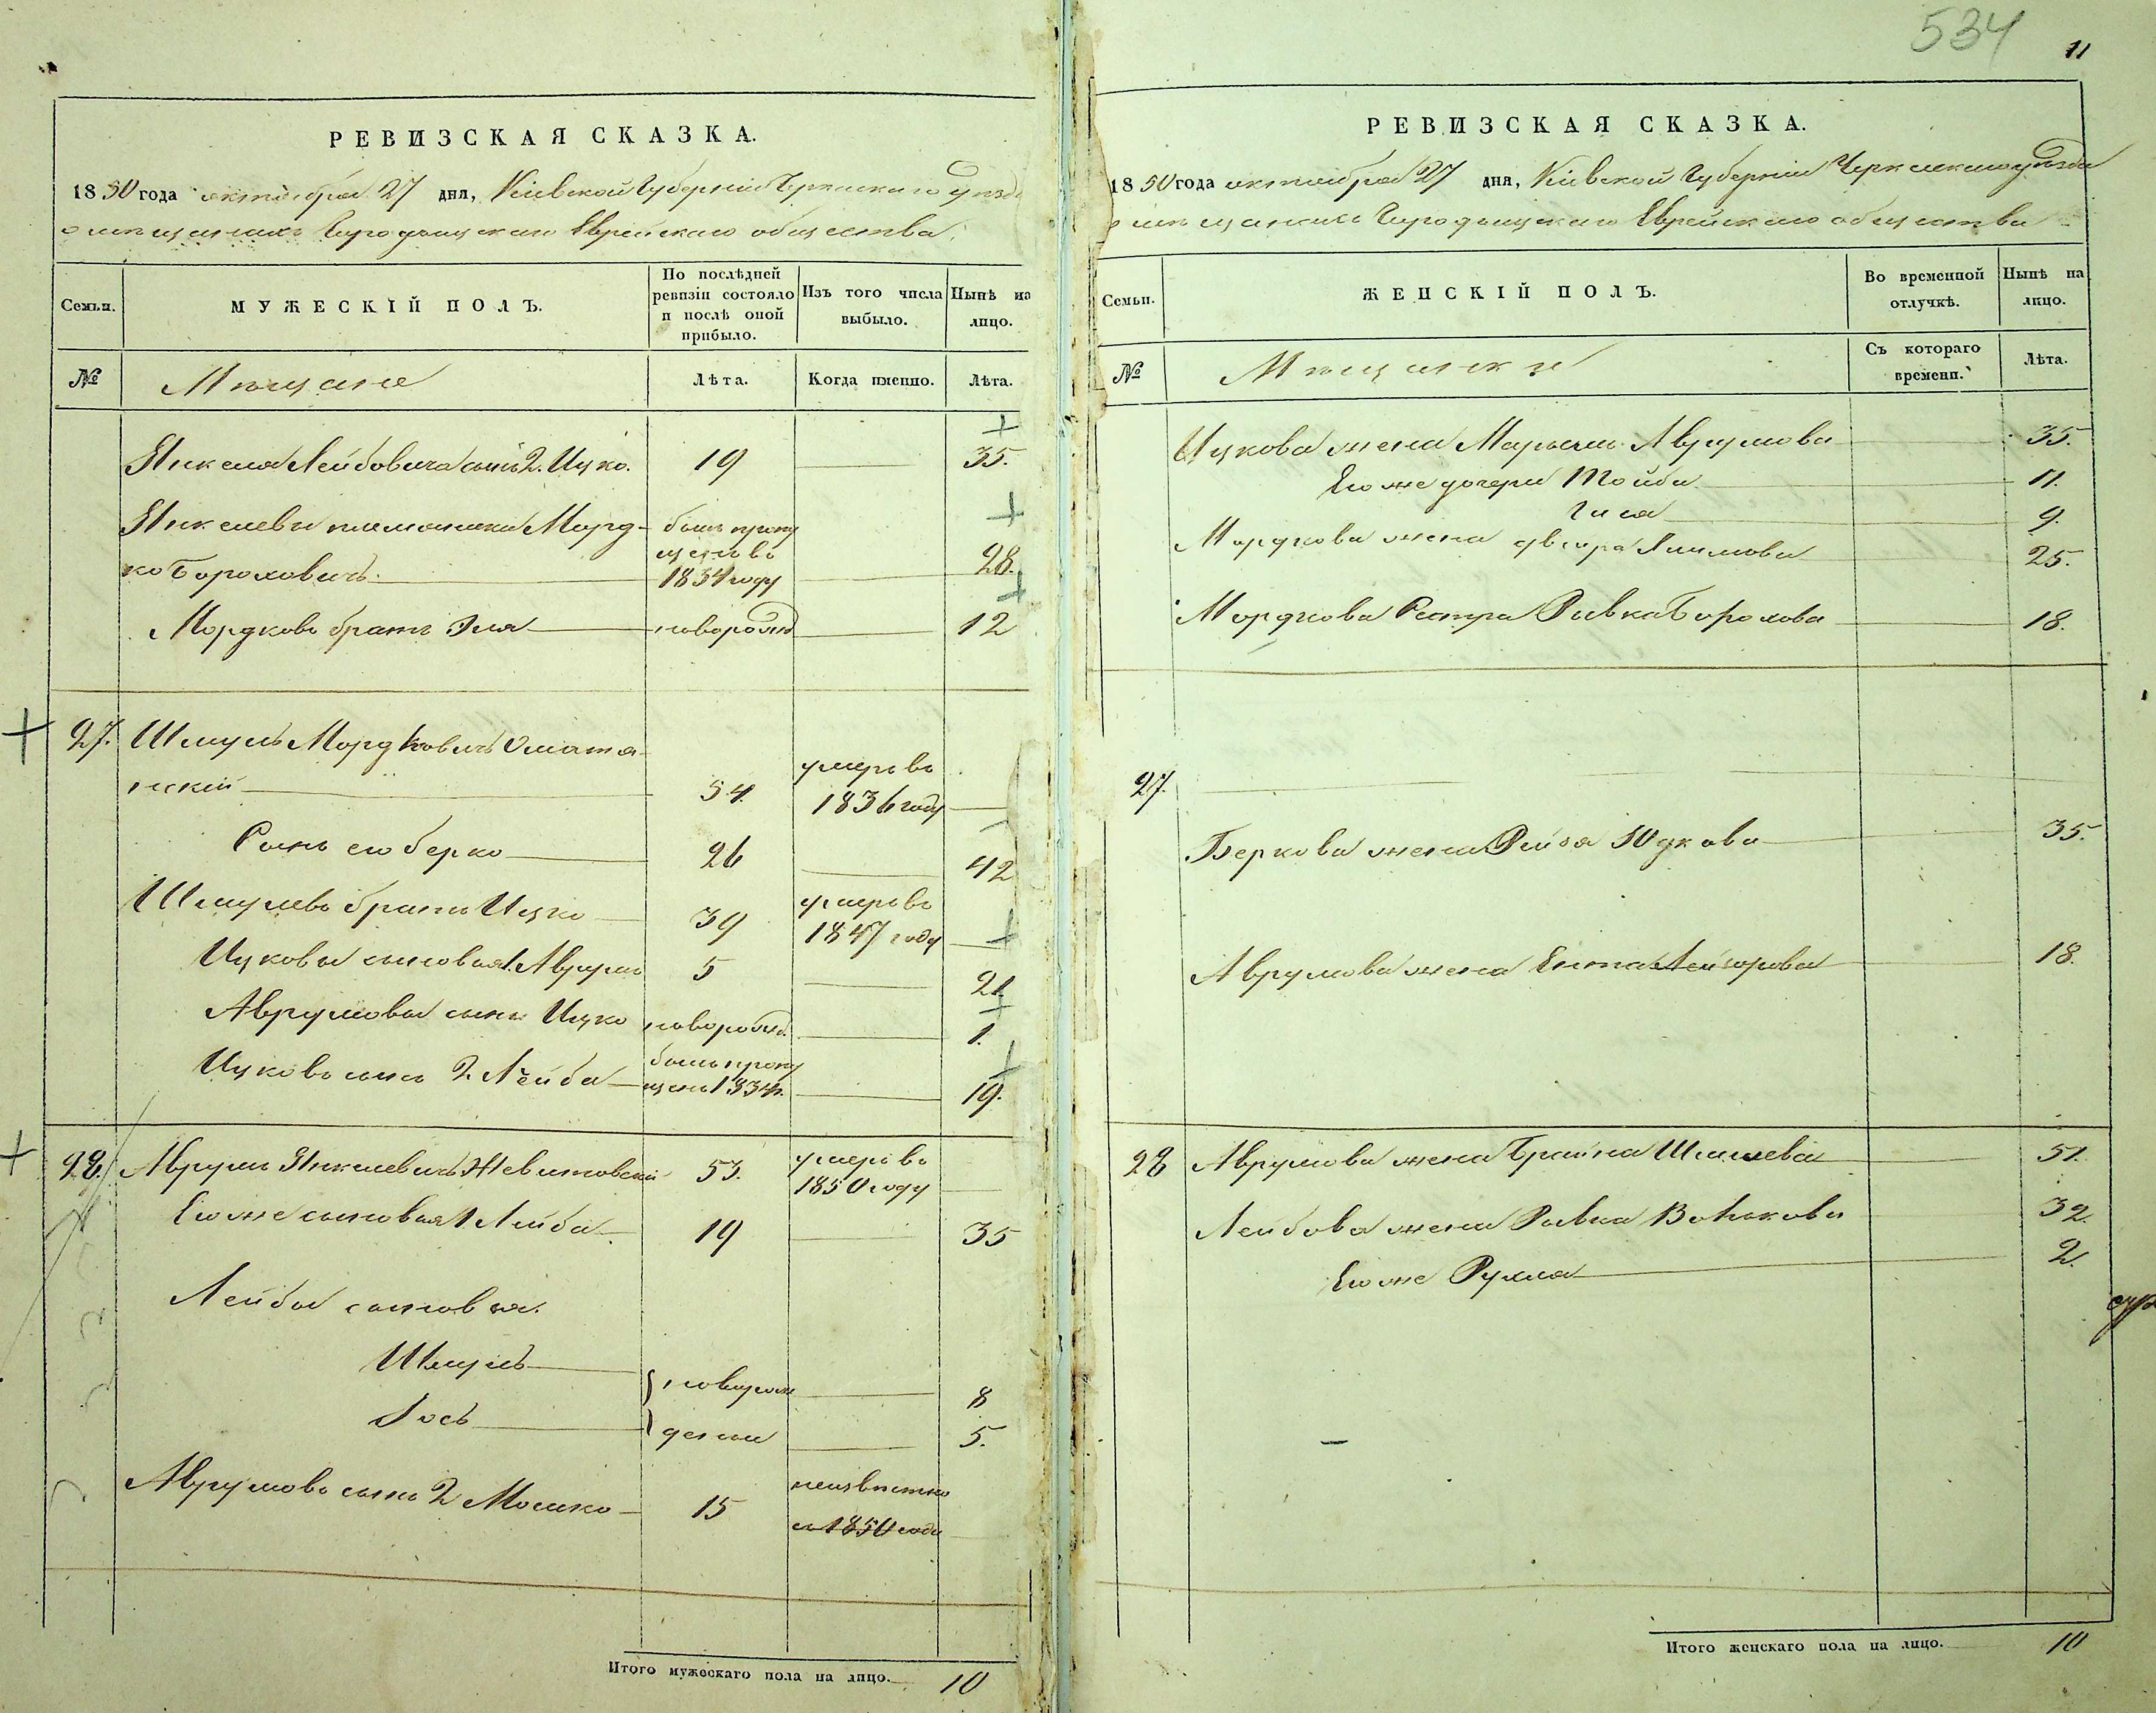 534
11
РЕВИЗСКАЯ СКАЗКА.
1850 года октября 27 дня, Кіевской Губерніи Черкаскаго уѣзда
о мѣщанахъ Городищскаго Еврейскаго общества
Семьи.
МУЖЕСКІЙ ПОЛЪ.
По послѣдней ревизіи состояло и послѣ оной прибыло.
Изъ того числа выбыло.
Нынѣ на лицо.
№
Мѣщане
Лѣта.
Когда именно.
Лѣта.
Янкеля Лейбовича сынъ 2. Ицко. 19 35.
Янкелевъ племяникъ Морд- былъ пропу
ко Бороховичъ. щенъ въ 1834 году 28.
Мордковъ братъ Эля новорожд 12
27. Шмуль Мордковичъ
скій 54. умеръ въ 1836 году
Сынъ его Берко 26 42
Шмулевъ братъ Ицко 39 умеръ въ 1847 году
Ицковы сыновья 1. Аврумъ 5 21.
Аврумовъ сынъ Ицко новорожд. 1.
Ицковъ сынъ 2 Лейба былъ пропу щенъ 1834 г. 19.
28. Аврумъ Янкелевичъ 53. умеръ въ 1850 году
Его же сыновья 1 Лейба 19 35
Лейбы сыновья.
Шмуль новорож 8
Іось денны 5.
Аврумовъ сынъ 2 Мошко 15 неизвѣстно съ 1850 года
Итого мужескаго пола на лицо. 10
РЕВИЗСКАЯ СКАЗКА.
1850 года октября 27 дня, Кіевской Губерніи Черкаскаго уѣзда
о мѣщанкахъ Городищскаго Еврейскаго общества
Семьи.
ЖЕНСКІЙ ПОЛЪ.
Во временной отлучкѣ.
Нынѣ на лицо.
№
Мѣщанки
Съ котораго времени.
Лѣта.
Ицкова жена Марьямъ Аврумова 35.
Его же дочери Тойба 11.
9.
Мордкова жена Двейра 25.
Мордкова Сестра Ривка Борохова 18.
27.
Беркова жена Рейза Юдкова 35.
Аврумова жена Ента 18.
28 Аврумова жена Брайна 51.
Лейбова жена Ривка Волькова 32.
Его же Рухля 2.
Итого женскаго пола на лицо. 10